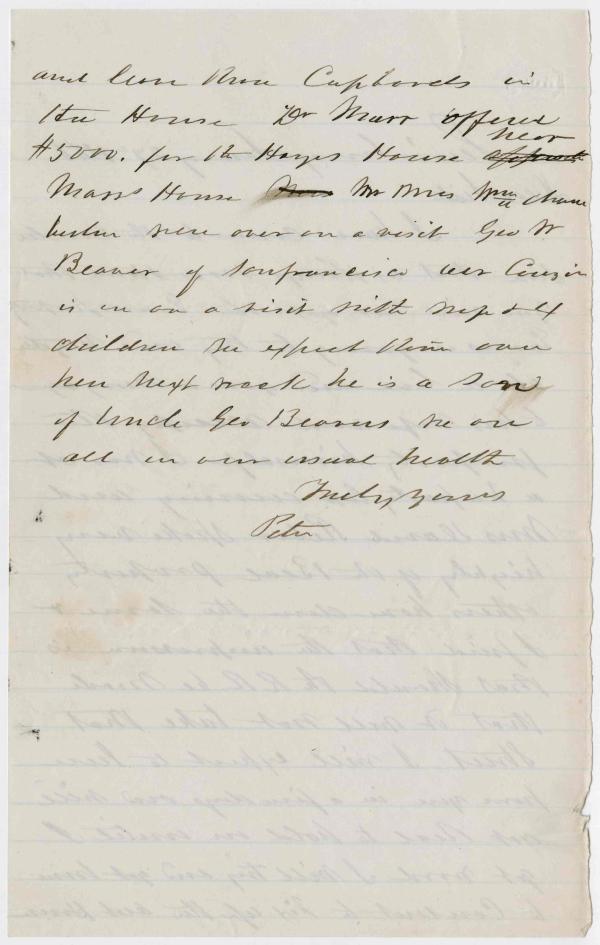 and leave those Cupbords in
the House Dr Marr offered
near
$5000. for th Hayes House opposite
Marrs House Mrs Mr Mrs Wm a Cham
berlin were over on a visit Geo W
Beaver of Sanfrancisco our Couzin
is in on a visit with wife & 4
children we expect them over
here next week he is a Son
of Uncle Geo Beavers we are
all in our usual health
Truly yours
Peter